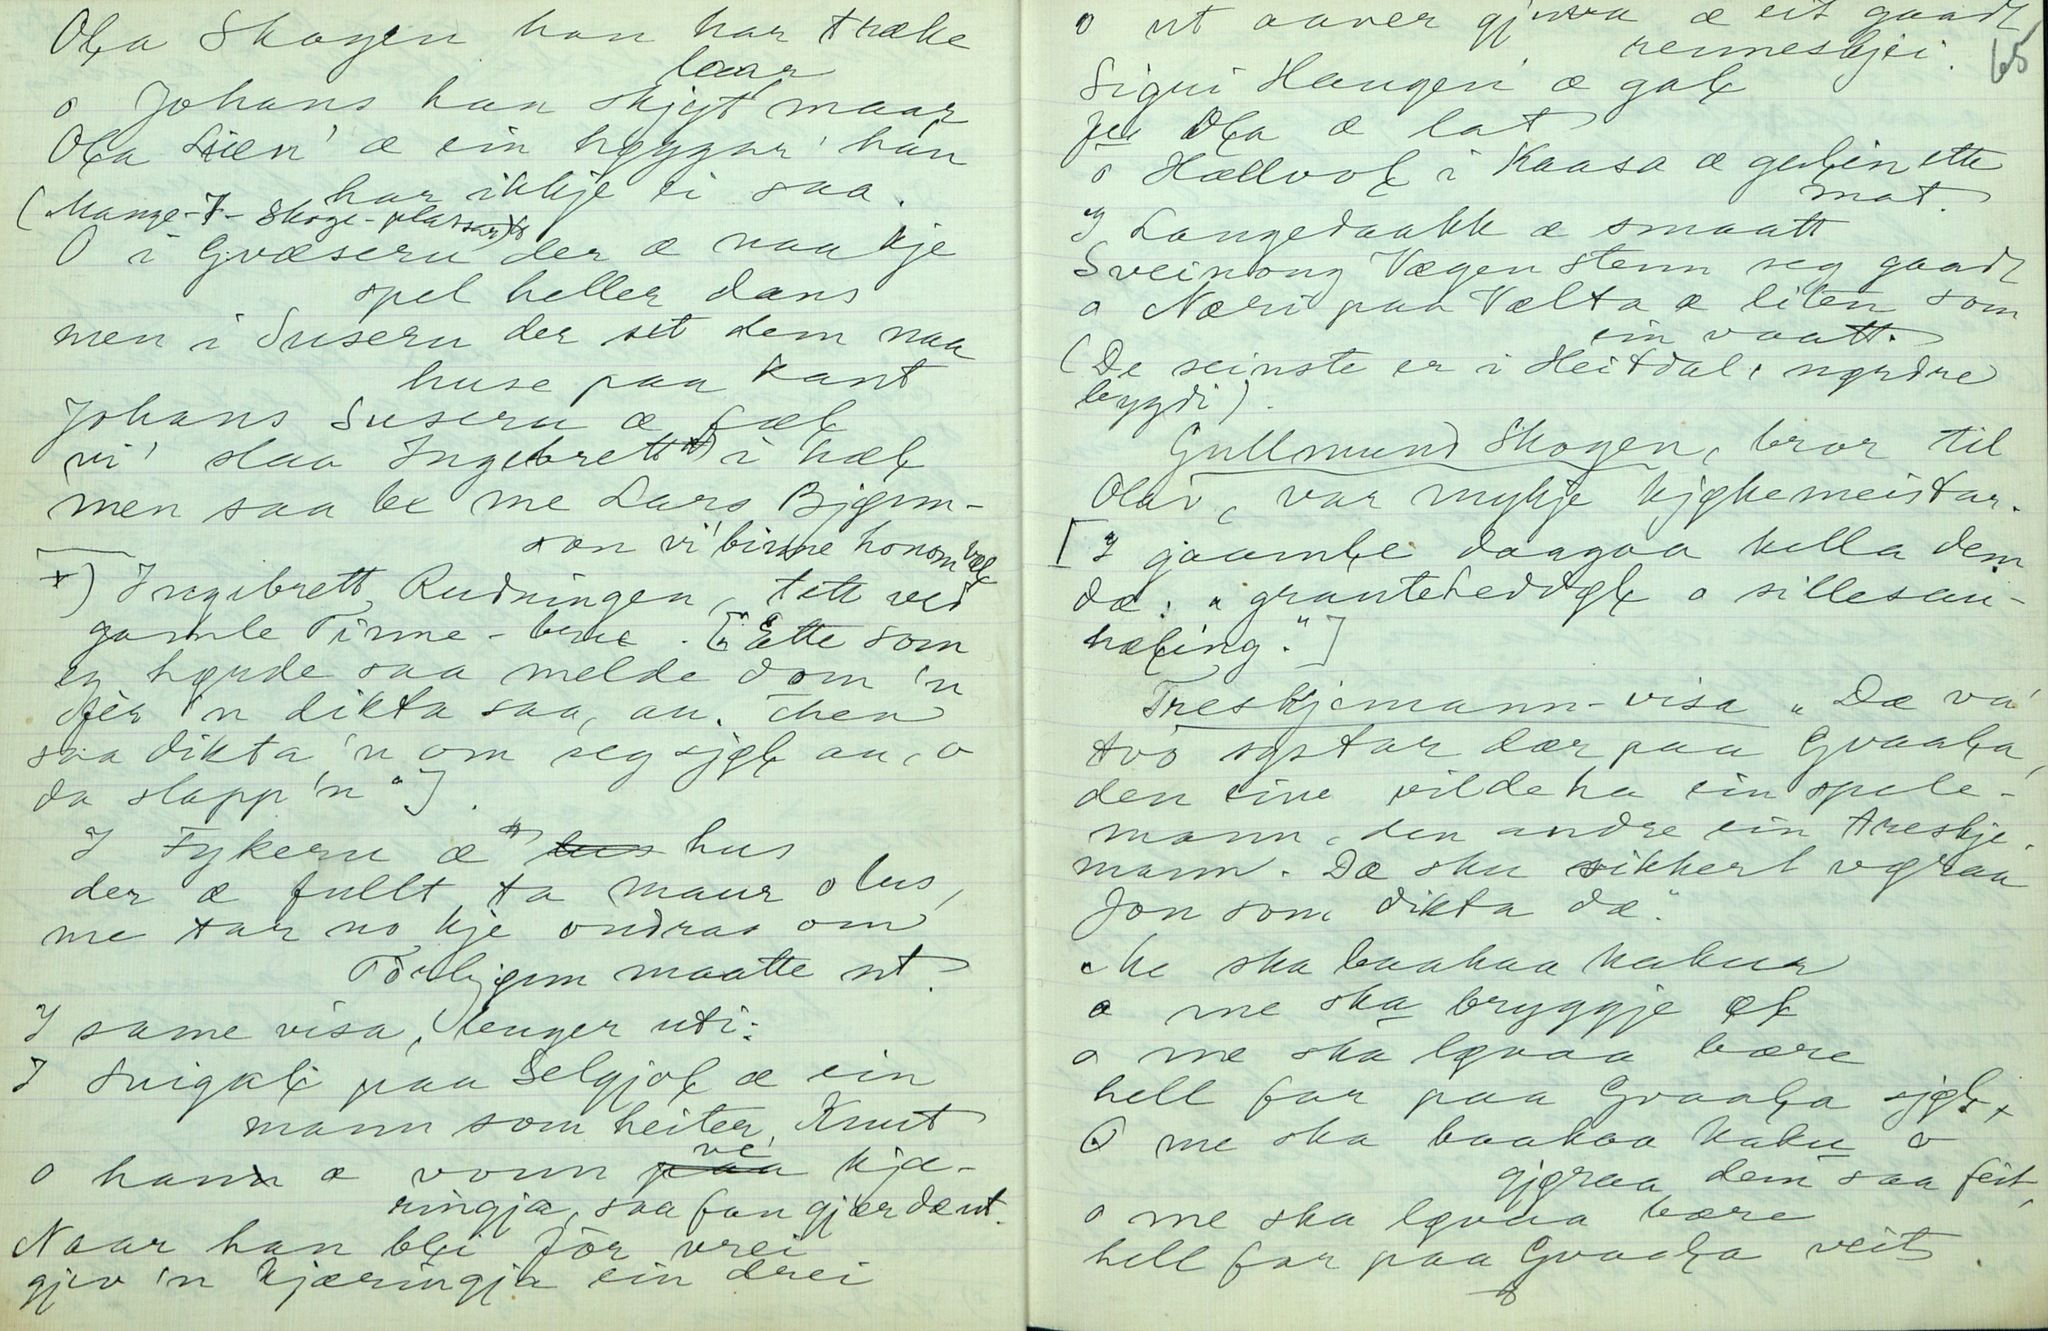 Oła Skogen han har træke
laar
o Johans han skjøt maar
Oła Liæn' æ ein høggar' han
har ikkje ei saa.
(Mange-T- Skoge-plassar)
O i Gvæseru der æ naa kje
spel heller dans
men i Suseru der set dem naa
huse paa kant
Johans Suseru æ fæł
vi' slaa Ingebrett x) i hæł
men saa be me Lars Bjønn-
son vi' binne honom væł
x) Ingibrett Rudningen, tett ved
gamle Tinne-bru. ["Ette som
eg høyrde saa melde dom 'n
fer 'n dikta saa, au. Men
saa dikta 'n om seg sjøł au, o
da slapp 'n"].
I Fykeru æ hus
der æ fullt ta maur o lus,
me tar no kje ondras om
Torbjønn maatte ut.
I same visa, lenger uti:
I Svigkłi paa Selgjoł æ ein
mann som heiter Knut
o hann æ vonn ve kjæ-
ringja, saa fan gjær dæ ut.
Naar han błei før vrei
gjev 'n kjæringja ein drei
o ut aaver æ eit gaadt
renneskjei.
65
Sigri Haugen æ gał
per Oła æ lat
o Hællvoł i Kaasa æ gałin ette
mat.
I Langedaakk æ smaatt
Sveinong Vægen stenn seg gaadt
o Næri paa Vælta æ liten som
ein vaatt.
(De seinste er i Heitdal, nørdre
bygdi).
Gullmund Skogen, bror til
Olav, var mykje kjøkemeistar.
[I gaamłe daagaa kella dem
dæ: "grauteheddøł o sillesau-
hæling."]
Treskjemann-visa "Dæ va'
tvo systar dær paa Gvaała,
den eine vilde ha ein spele-
mann, den andre ein treskje-
mann. Dæ sku sikkert vøraa
Jon som dikta dæ."
Me ska baakaa kakur
o me ska bryggje øł
o me ska løvaa bære
hell far paa Gvaała sjøł.
O me ska baakaa kaku o
gjøraa dem saa feit,
o me ska løvaa bære
hell far paa Gvaała veit.